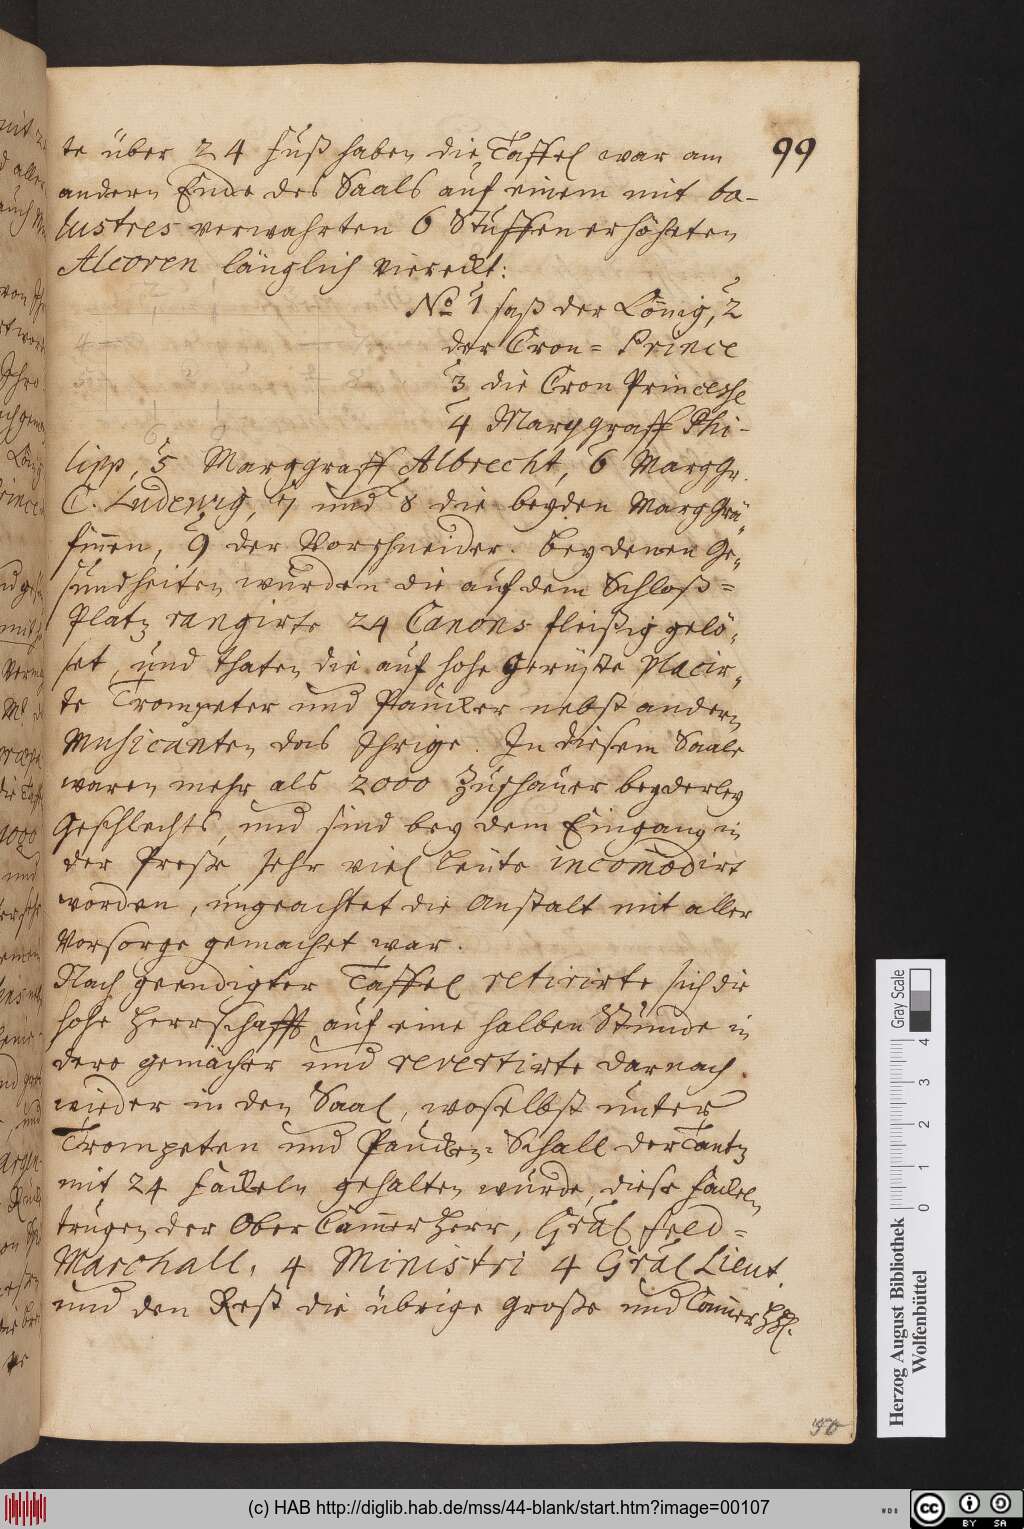 99
te über 24 Fuß haben die Taffel war am
andern Ende des Saals auf einem mit ba-
lustres verwahrten 6 Stuffen erhöheten
Alcoven länglich viereckt:
No 1 saß der König, 2
der Cron= Prince
3 die Cron Princesse
4 Marggraff Phi-
lipp, 5 Marggraff Albrecht, 6 MargGr.
C. Ludewig, 7 und 8 die beyden MargGrä-
finnen, 9 der Vorschneider. Bey denen Ge-
sundheiten wurden die auf dem Schloß=
Platz rangirte 24 Canons fleißig gelö-
set, und thaten die auf hohe Gerüste placir-
te Trompeter und Paucker nebst andern
Musicanten das Ihrige. In diesem Saale
waren mehr als 2000 Zuschauer beyderley
Geschlechts, und sind bey dem Eingang in
der Presse sehr viel Leute incomodirt
worden, ungeachtet die Anstalt mit aller
Vorsorge gemachet war.
Nach geendigter Taffel retirirte sich die
hohe Herrschafft auf eine halben Stunde in
dero Gemächer und revertirte darnach
wieder in den Saal, woselbst unter
Trompeten und Paucken= Schall der Tantz
mit 24 Fackeln gehalten wurde, diese Fackeln
trugen der Ober Camer Herr, Gräl Feld=
Marchall, 4 Ministri 4 Gräl Lieut.
und den Rest die übrige Große und Camer HH.
50
Herzog August Bibliothek
Wolfenbüttel
0 1 2 3 4
Gray Scale
(c) HAB http://diglib.hab.de/mss/44-blank/start.htm?image=00107
WDB
cc BY SA